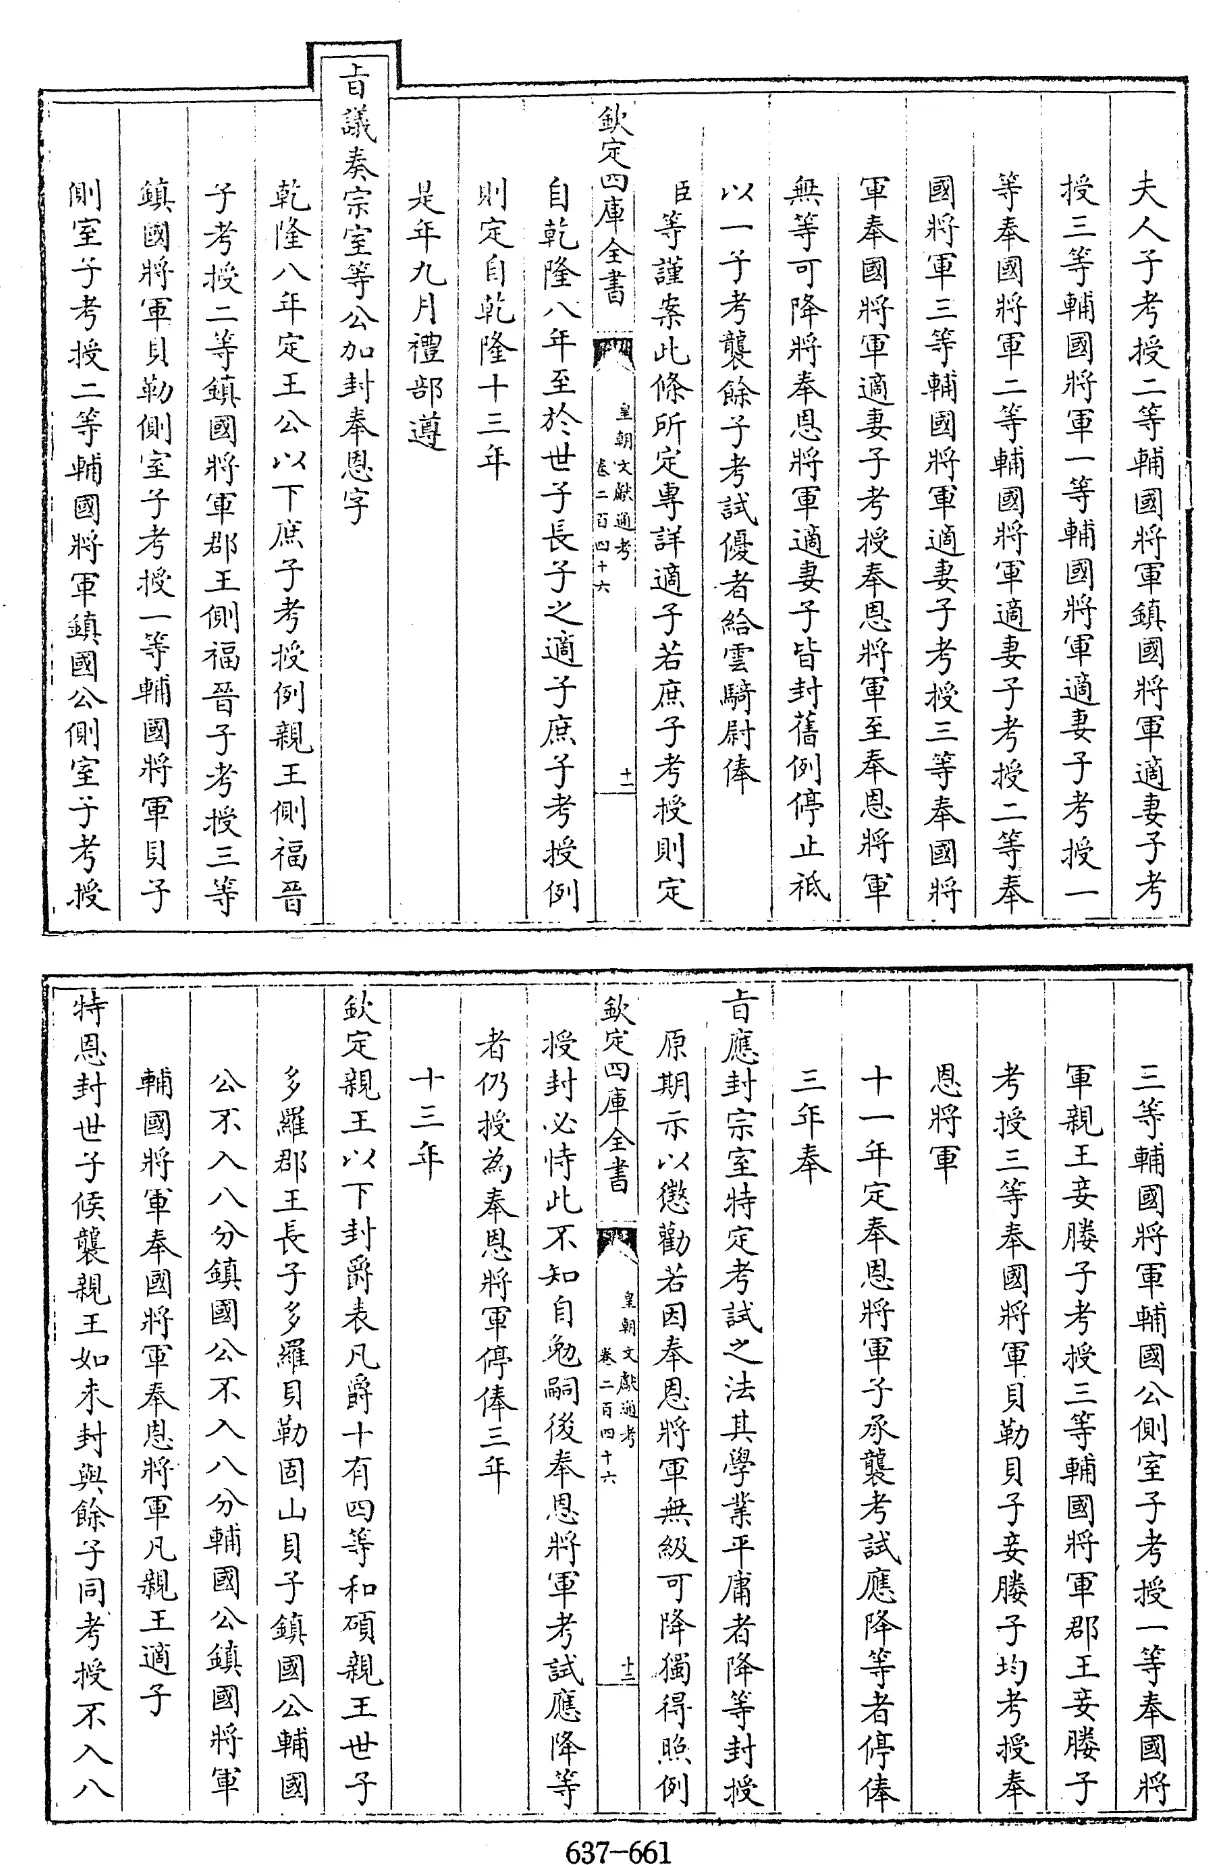 夫人子考授二等輔國將軍鎮國將軍適妻子考
授三等輔國將軍一等輔國將軍適妻子考授一
等奉國將軍二等輔國將軍適妻子考授二等奉
國將軍三等輔國將軍適妻子考授三等奉國將
軍奉國將軍適妻子考授奉恩將軍至奉恩將軍
無等可降將奉恩將軍適妻子皆封舊例停止祗
以一子考襲餘子考試優者給雲騎尉俸
臣等謹案此條所定專詳適子若庶子考授則定
欽定四庫全書
皇朝文獻通考
卷二百四十六
十一
自乾隆八年至於世子長子之適子庶子考授例
則定自乾隆十三年
是年九月禮部遵
旨議奏宗室等公加封奉恩字
乾隆八年定王公以下庶子考授例親王側福晉
子考授二等鎮國將軍郡王側福晉子考授三等
鎮國將軍貝勒側室子考授一等輔國將軍貝子
側室子考授二等輔國將軍鎮國公側室子考授
三等輔國將軍輔國公側室子考授一等奉國將
軍親王妾媵子考授三等輔國將軍郡王妾媵子
考授三等奉國將軍貝勒貝子妾媵子均考授奉
恩將軍
十一年定奉恩將軍子承襲考試應降等者停俸
三年奉
旨應封宗室特定考試之法其學業平庸者降等封授
原期示以懲勸若因奉恩將軍無級可降獨得照例
欽定四庫全書
皇朝文獻通考
卷二百四十六
十二
授封必恃此不知自勉嗣後奉恩將軍考試應降等
者仍授為奉恩將軍停俸三年
十三年
欽定親王以下封爵表凡爵十有四等和碩親王世子
多羅郡王長子多羅貝勒固山貝子鎮國公輔國
公不入八分鎮國公不入八分輔國公鎮國將軍
輔國將軍奉國將軍奉恩將軍凡親王適子
特恩封世子候襲親王如未封與餘子同考授不入八
637-661